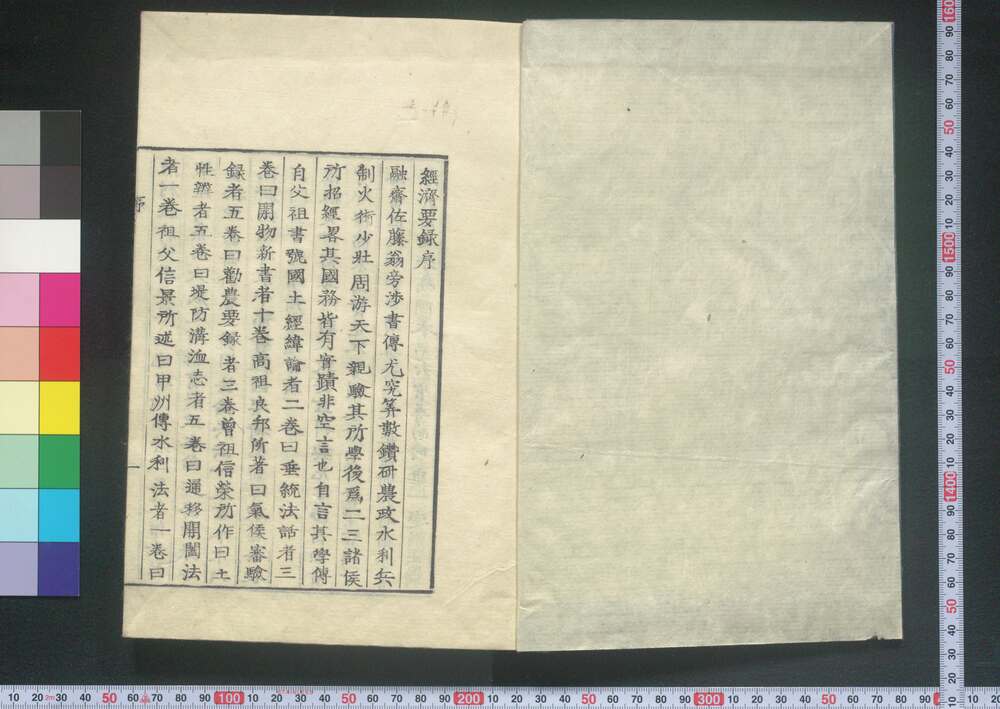 經濟要録序
融齋佐藤翁旁渉書傳尤究算數鑽研農政水利兵
制火術少壯周游天下親驗其所學後爲二三諸侯
所招經畧其國務皆有實蹟非空言也自言其學傳
自父祖書號國土經緯論者二卷曰垂統法話者三
卷曰開物新書者十卷高祖良邦所著曰氣候審驗
録者五卷曰勸農要録者三卷曾祖信榮所作曰土
性辨者五卷曰堤防溝洫志者五卷曰運移開闔法
者一卷祖父信景所述曰甲州傳水利法者一卷曰
序
一